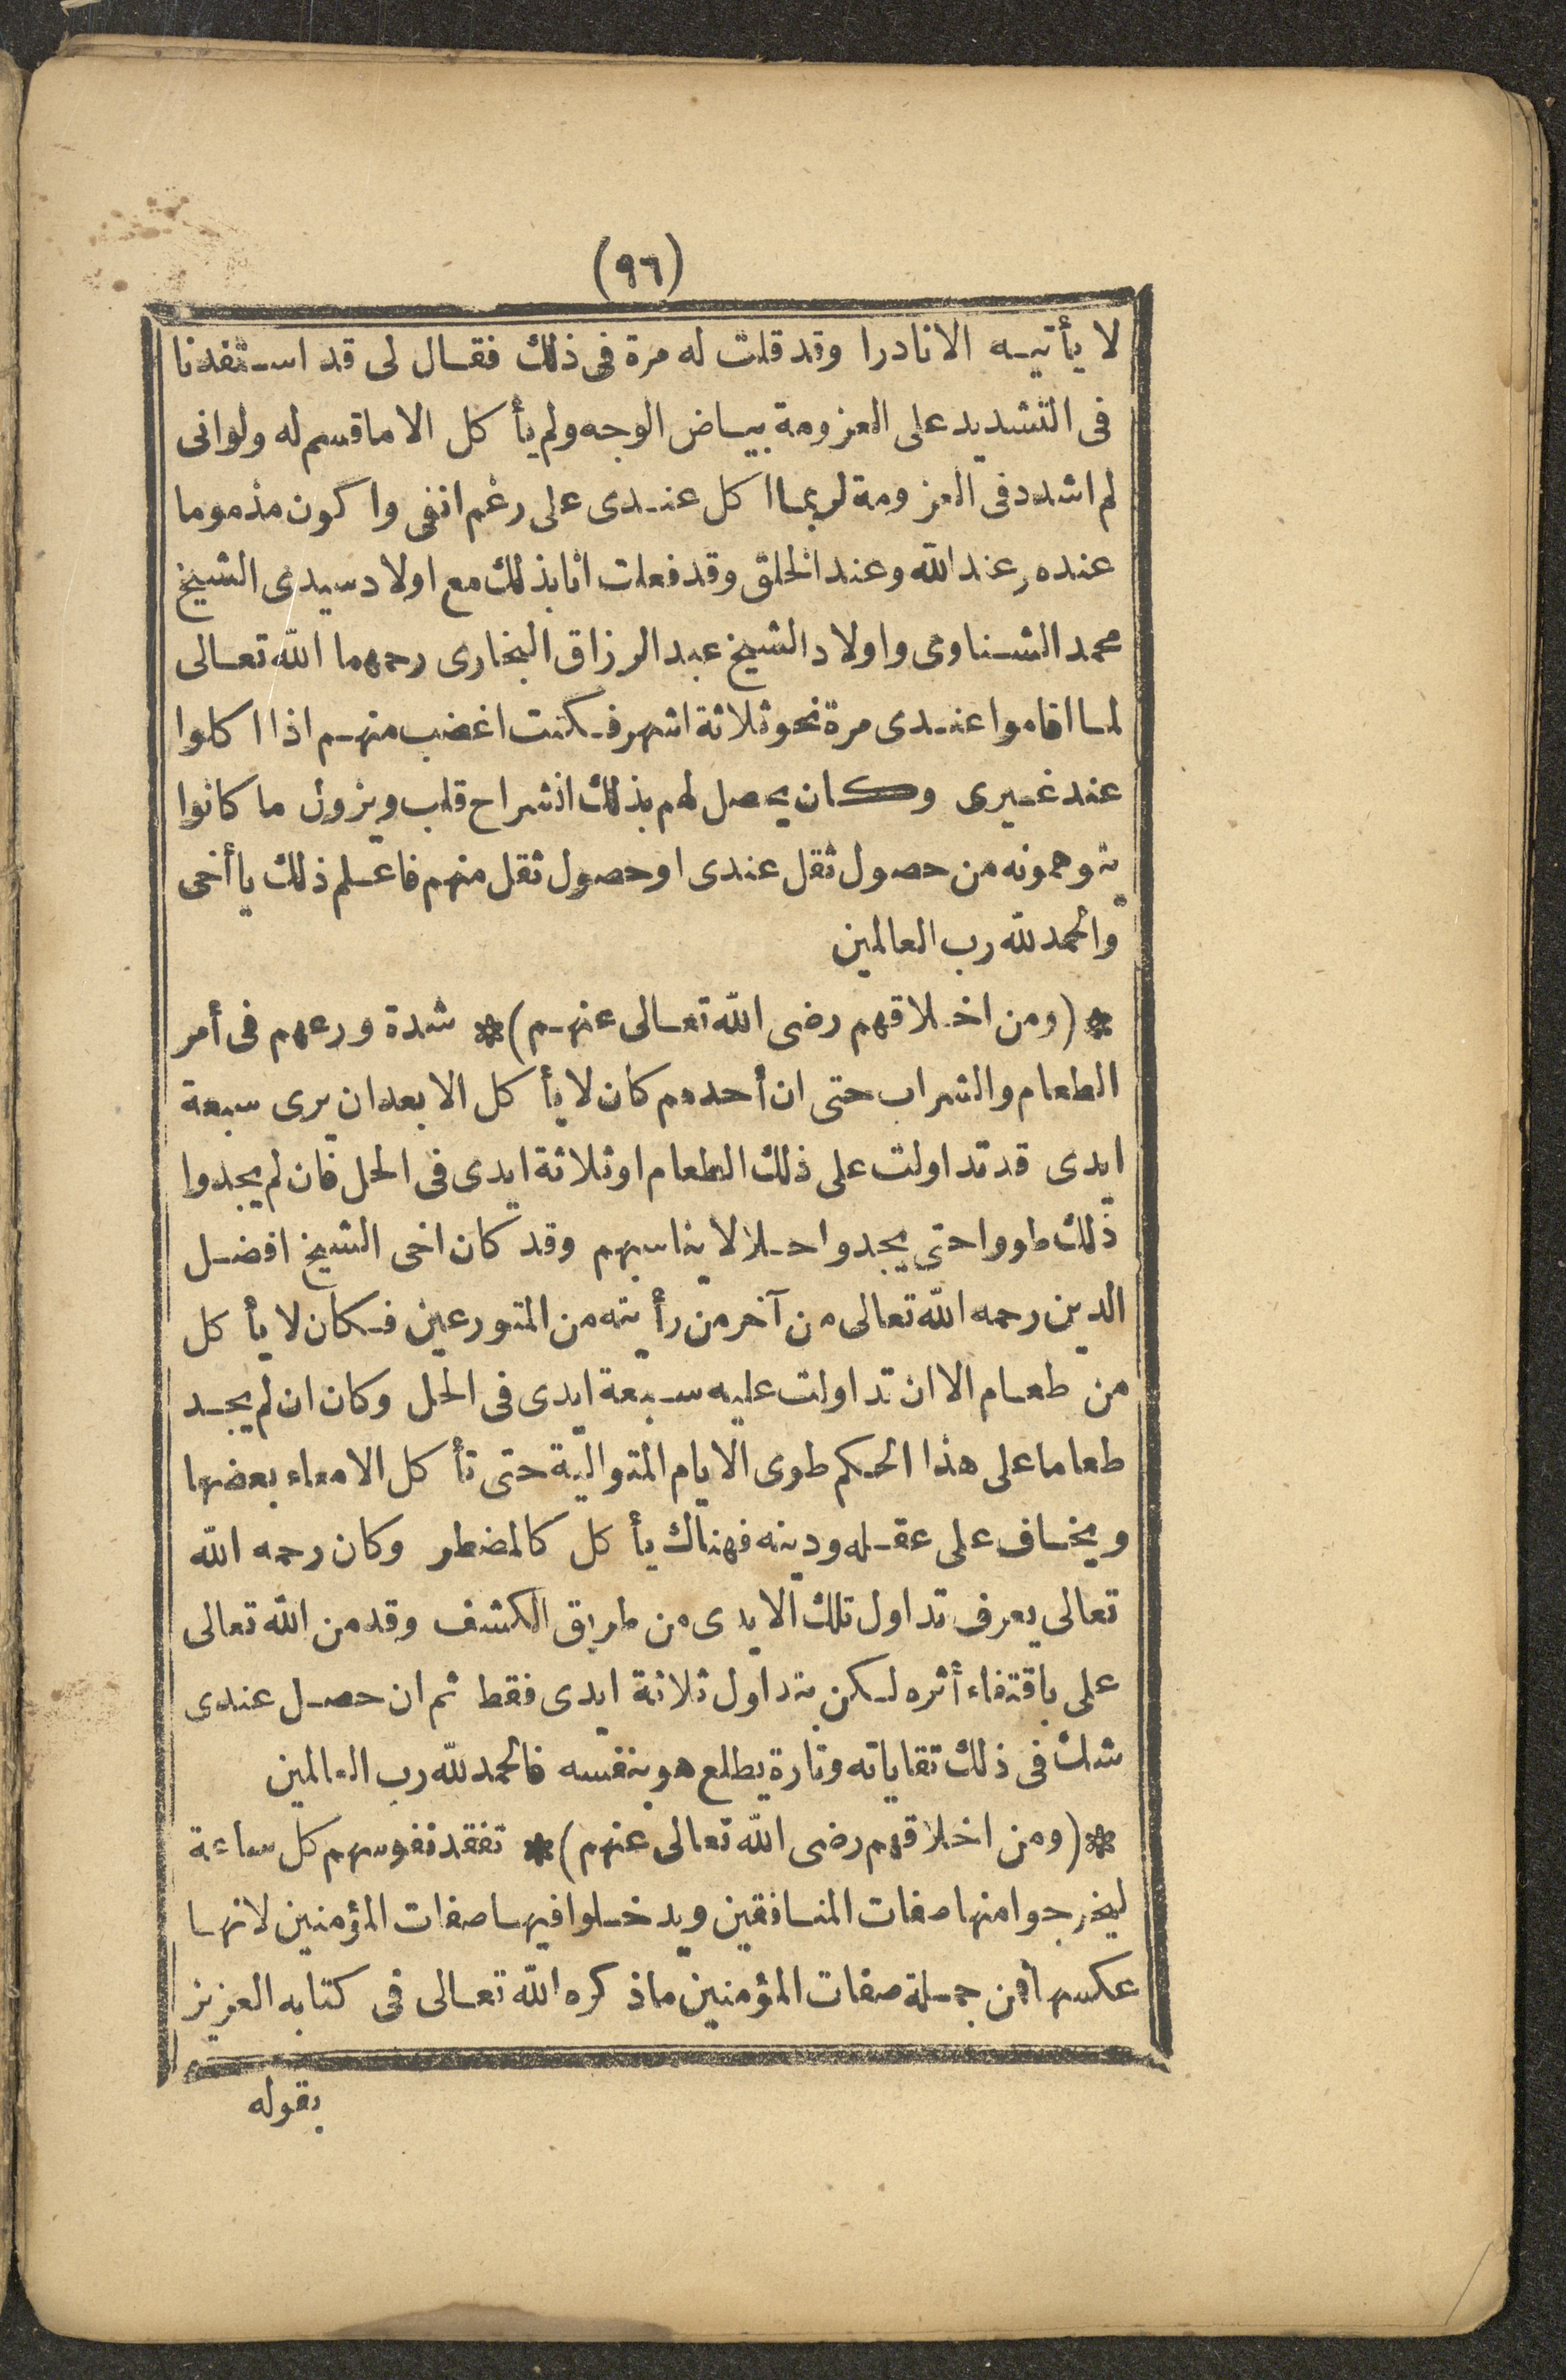 (٩٦)
لا يأتيه الا نادرا وقد قلت له مرة فى ذلك فقال لى قد استفدنا
فى التشديد على العزومة بياض الوجه ولم يأكل الا ما قسم له ولو انى
لم اشدد فى العزومة لربما اكل عندى على رغم انفى واكون مذموما
عنده وعند الله وعند الخلق وقد فعلت انا بذلك مع اولاد سيدى الشيخ
محمد الشناوى واولاد الشيخ عبد الرزاق البخارى رحمهما الله تعالى
لما اقاموا عندى مرة نحو ثلاثة اشهر فكنت اغضب منهم اذا اكلوا
عند غيرى وكان يحصل لهم بذلك انشراح قلب ويزول ما كانوا
يتوهمونه من حصول ثقل عندى او حصول ثقل منهم فاعلم ذلك يا أخى
والحمد لله رب العالمين
* (ومن اخلاقهم رضى الله تعالى عنهم) * شدة ورعهم فى أمر
الطعام والشراب حتى ان أحدهم كان لا يأكل الا بعد ان يرى سبعة
ايدى قد تداولت على ذلك الطعام او ثلاثة ايدى فى الحل فان لم يجدوا
ذلك طووا حتى يجدوا حلالا يناسبهم وقد كان اخى الشيخ افضل
الدين رحمه الله تعالى من آخر من رأيته من المتورعين فكان لا يأكل
من طعام الا ان تداولت عليه سبعة ايدى فى الحل وكان ان لم يجد
طعاما على هذا الحكم طوى الايام المتوالية حتى تأكل الامعاء بعضها
ويخاف على عقله ودينه فهناك يأكل كالمضطر وكان رحمه الله
تعالى يعرف تداول تلك الايدى من طريق الكشف وقد من الله تعالى
على باقتفاء أثره لكن بتداول ثلاثة ايدى فقط ثم ان حصل عندى
شك فى ذلك تقاياته وتارة يطلع هو بنفسه فالحمد لله رب العالمين
* (ومن اخلاقهم رضى الله تعالى عنهم) * تفقد نفوسهم كل ساعة
ليخرجوا منها صفات المنافقين ويدخلوا فيها صفات المؤمنين لانها
عكسها فمن جملة صفات المؤمنين ما ذكره الله تعالى فى كتابه العزيز
بقوله